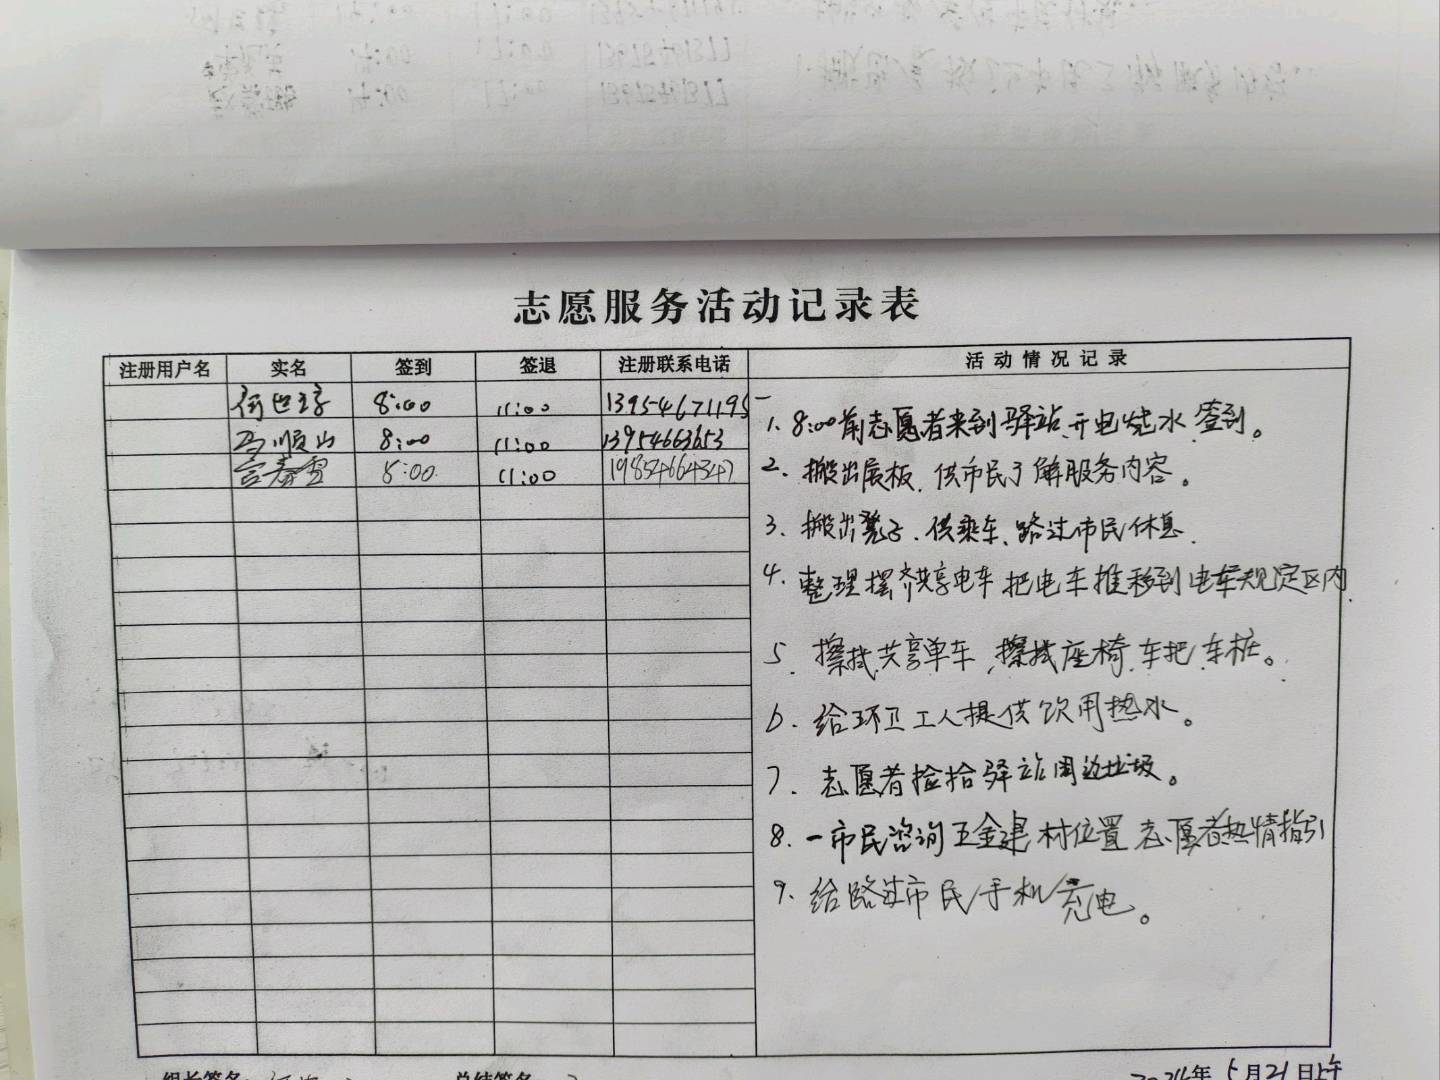 志愿服务活动记录表
注册用户名 实名 签到 签退 注册联系电话 活动情况记录
8:00 11:00 13954671195
马顺山 8:00 11:00 13954663653
8:00 11:00 19854664347
1. 8:00前志愿者来到驿站.开电烧水.签到。
2. 搬出展板.供市民了解服务内容。
3. 搬出凳子.供乘车、路过市民休息.
4. 整理摆齐共享电车 把电车推移到电车规定区内.
5. 擦拭共享单车,擦拭座椅.车把.车桩。
6. 给环卫工人提供饮用热水。
7. 志愿者捡拾驿站周边垃圾。
8. 一市民咨询五金建材位置 志愿者热情指引
9. 给路过市民手机充电。
组长签名 总结签名 2024年5月21日上午